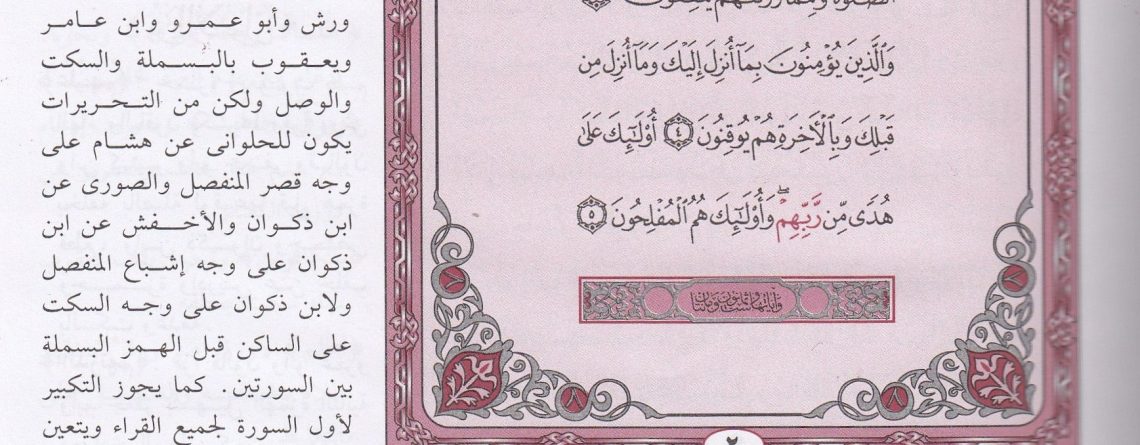 ٱلصَّلَوٰةَ وَمِمَّا رَزَقْنَٰهُمْ يُنفِقُونَ
وَٱلَّذِينَ يُؤْمِنُونَ بِمَآ أُنزِلَ إِلَيْكَ وَمَآ أُنزِلَ مِن
قَبْلِكَ وَبِٱلْأَخِرَةِ هُمْ يُوقِنُونَ ٤ أُو۟لَٰٓئِكَ عَلَىٰ
هُدًى مِّن رَّبِّهِمْ ۖ وَأُو۟لَٰٓئِكَ هُمُ ٱلْمُفْلِحُونَ ٥
٢
ورش وأبو عمرو وابن عامر
ويعقوب بالبسملة والسكت
والوصل ولكن من التحريرات
يكون للحلوانى عن هشام على
وجه قصر المنفصل والصورى عن
ابن ذكوان والأخفش عن ابن
ذكوان على وجه إشباع المنفصل
ولابن ذكوان على وجه السكت
على الساكن قبل الهمز البسملة
بين السورتين. كما يجوز التكبير
لأول السورة لجميع القراء ويتعين